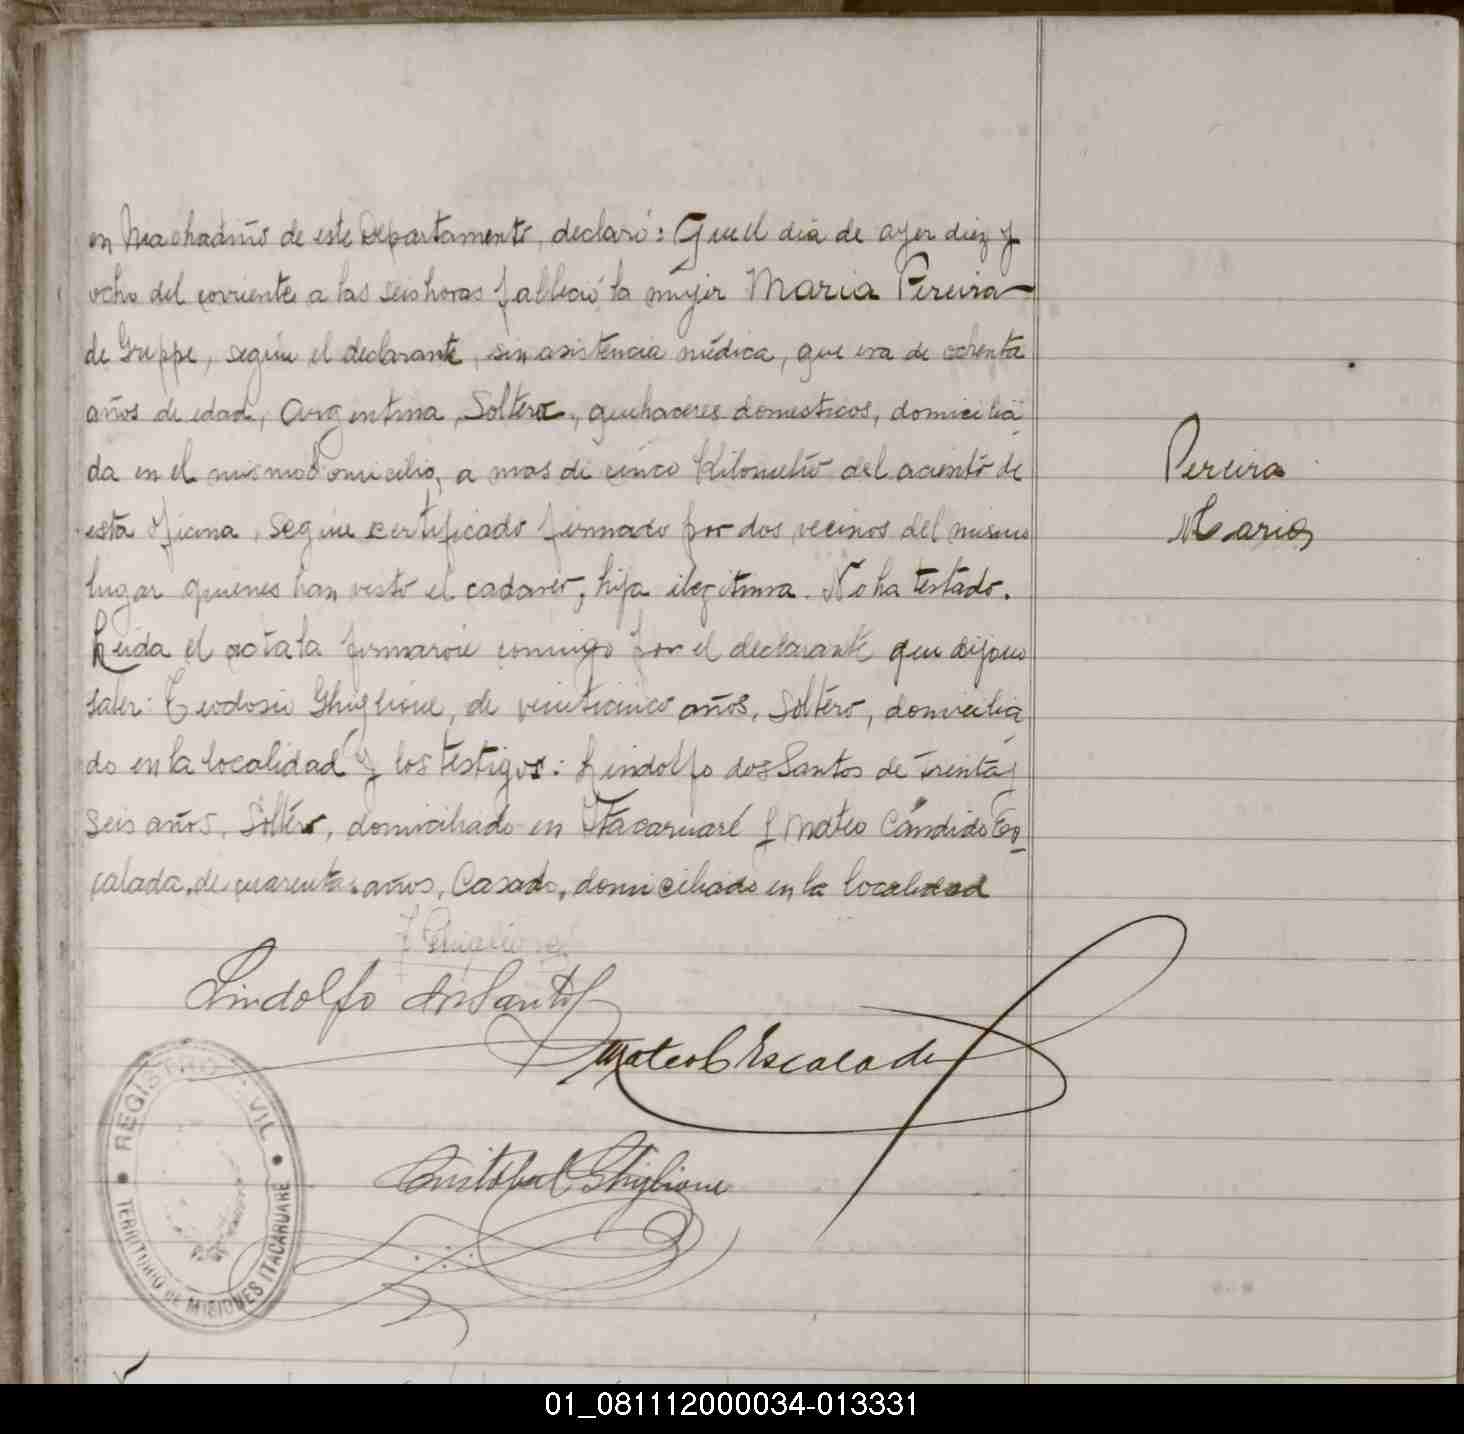 en Machadiño de este Departamento, declaró: Que el dia de ayer diez y
ocho del corriente a las seis horas falleció la mujer Maria Pereira
de Greppe, según el declarante, sin asistencia médica, que era de ochenta
años de edad, Argentina, Soltera, quehaceres domesticos, domicilia
da en el mismo domicilio, a mas de cinco Kilometro del aciento de
esta Oficina, según certificado firmado por dos vecinos del mismo
lugar quienes han visto el cadaver, hija ilegitima. No ha testado.
Leida el acta la firmaron conmigo por el declarante que dijo no
saber: Teodosio Ghiglione, de veinticinco años, Soltero, domicilia
do en la localidad y los testigos: Lindolfo dos Santos de treinta y
seis años, Soltero, domiciliado en Itacaruaré y Mateo Cándido Es-
calada, de cuarenta años, Casado, domiciliado en la localidad
Pereira
Maria
T Ghiglione
Lindolfo dos Santos
Mateo C Escalada
Cristobal Ghiglione
REGISTRO VIL
TERRITORIO DE MISIONES ITACARUARE
01_081112000034-013331